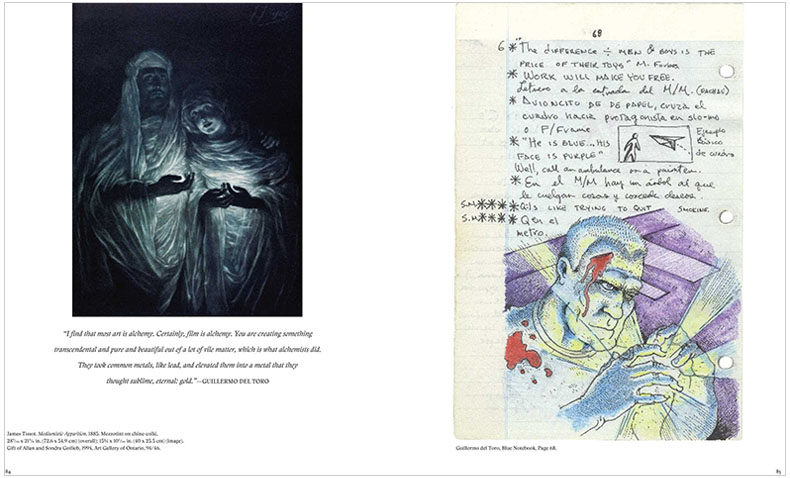 "I find that most art is alchemy. Certainly, film is alchemy. You are creating something
transcendental and pure and beautiful out of a lot of vile matter, which is what alchemists did.
They took common metals, like lead, and elevated them into a metal that they
thought sublime, eternal: gold."—GUILLERMO DEL TORO
James Tissot. Mediumistic Apparition, 1885. Mezzotint on chine-collé,
Gift of Allan and Sondra Gotlieb, 1994, Art Gallery of Ontario, 94/
84
68
6 * "The DIFFERENCE ÷ MEN & BOYS IS THE
PRICE OF THEIR TOYS" M. Forbes
* WORK WILL MAKE YOU FREE.
Letrero a la entrada del M/M.
* AVIONCITO DE DE PAPEL, CRUZA EL
CUADRO HACIA PROTAGONISTA EN SLO-MO
O P/Frame
Ejemplo
Básico
de cuadro
* "HE IS BLUE...HIS
FACE IS PURPLE"
Well, call an ambulance or a painter.
* En el M/M hay un árbol al que
le cuelgan cosas y concede deseos.
S.M**** Girls LIKE TRYING TO QUIT SMOKING.
S.M**** Q en el
metro.
Guillermo del Toro, Blue Notebook, Page 68.
85